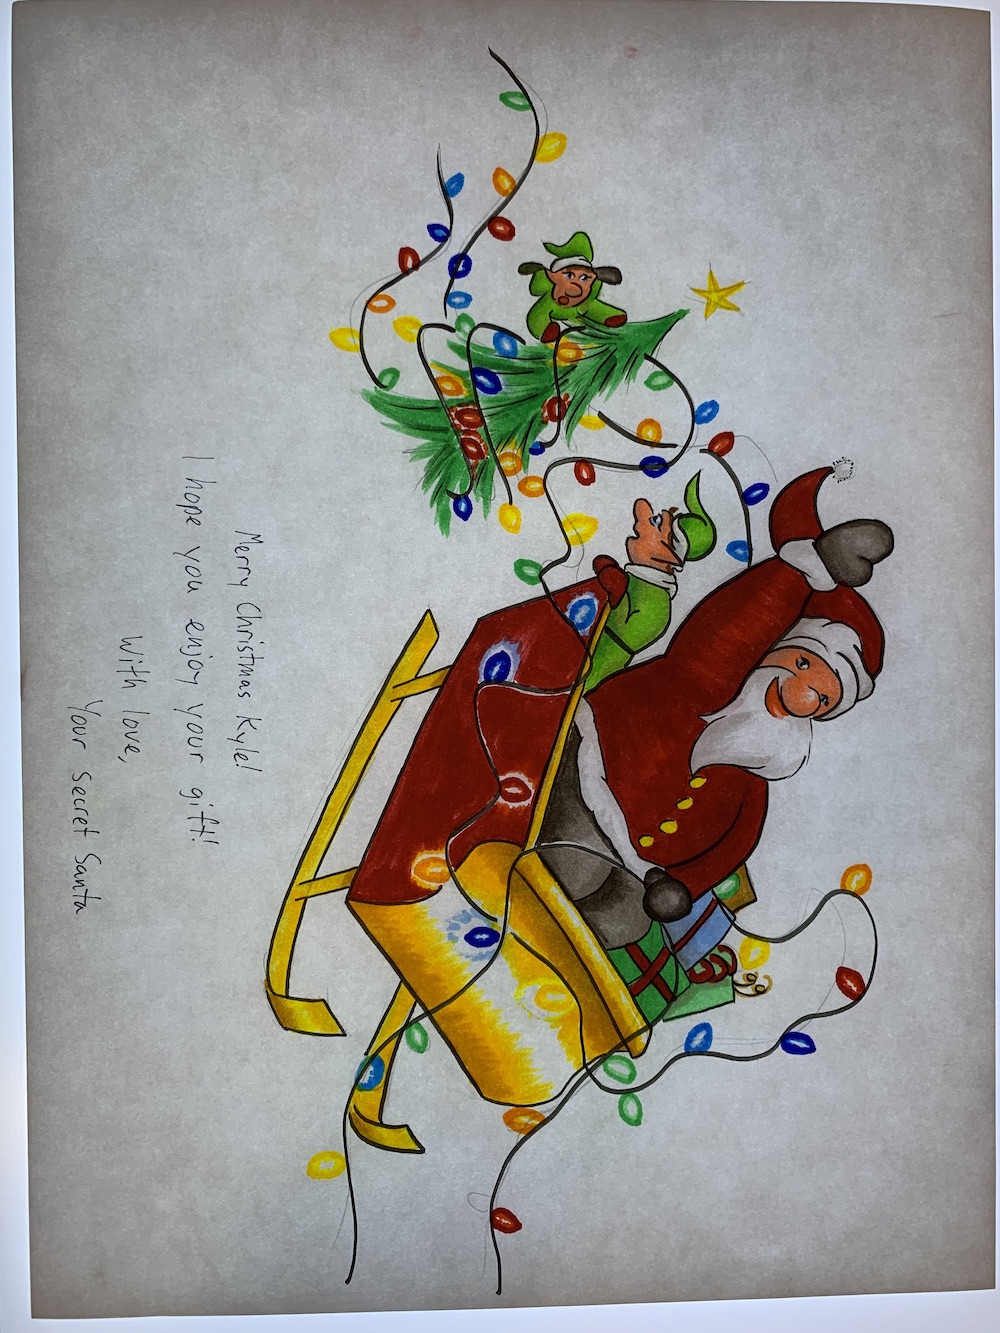 Merry Christmas Kyle!
I hope you enjoy your gift!
With love,
Your Secret Santa